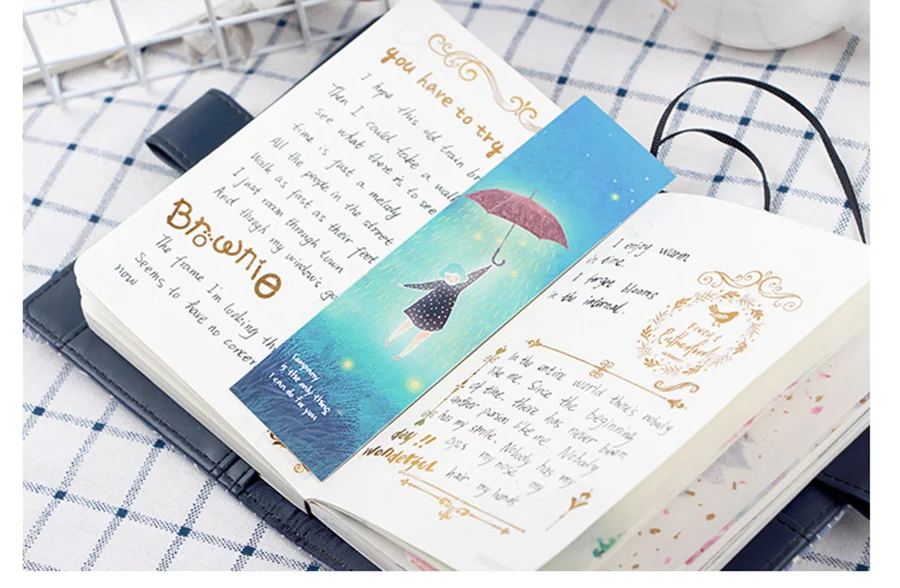 you have to try
I hope this old train br
Then I could take a wal
See what there is to see
time is just a melody
All the people in the street
Walk as fast as their feet
I just roam through town
And though my window's go
Brownie
The frame I'm looking th
Seems to have no concer
now
Company
is the only thing
I can do for you
I enjoy warm
in time.
I forget blooms
in the infernal.
In the entire world there's nobody
like me. Since the beginning
of time, there has never been
another person like me. Nobody
has my smile. Nobody has
my eyes my nose, my
hair my hands
day!!
wonderful